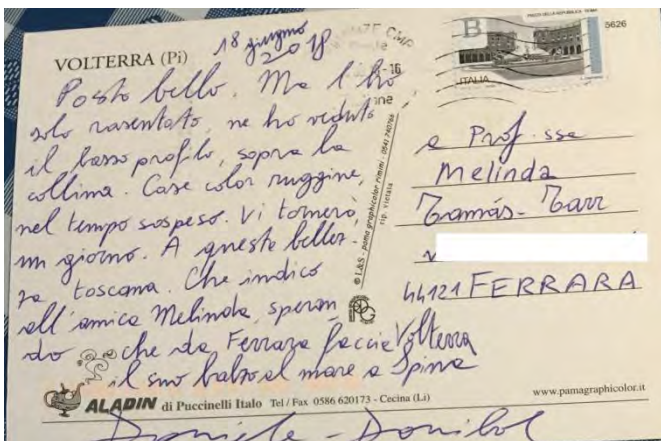 VOLTERRA (Pi)
18 giugno
2018
Posto bello. Ma l'ho
solo rasentato, ne ho veduto
il basso profilo, sopra la
collina. Case color ruggine,
nel tempo sospeso. Vi tornerò,
un giorno. A queste bellez-
za toscana. Che indico
all'amica Melinda, speran
do che da Ferrara faccia Volterra
il suo balzo al mare a Spina
Daniele - Donibol
B
ITALIA
5626
a Prof.ssa
Melinda
Tamás-Tarr
44121 FERRARA
© L&S - pama graphicolor rimini - 0541 740766
rip. vietata
ALADIN di Puccinelli Italo Tel / Fax 0586 620173 - Cecina (Li)
www.pamagraphicolor.it